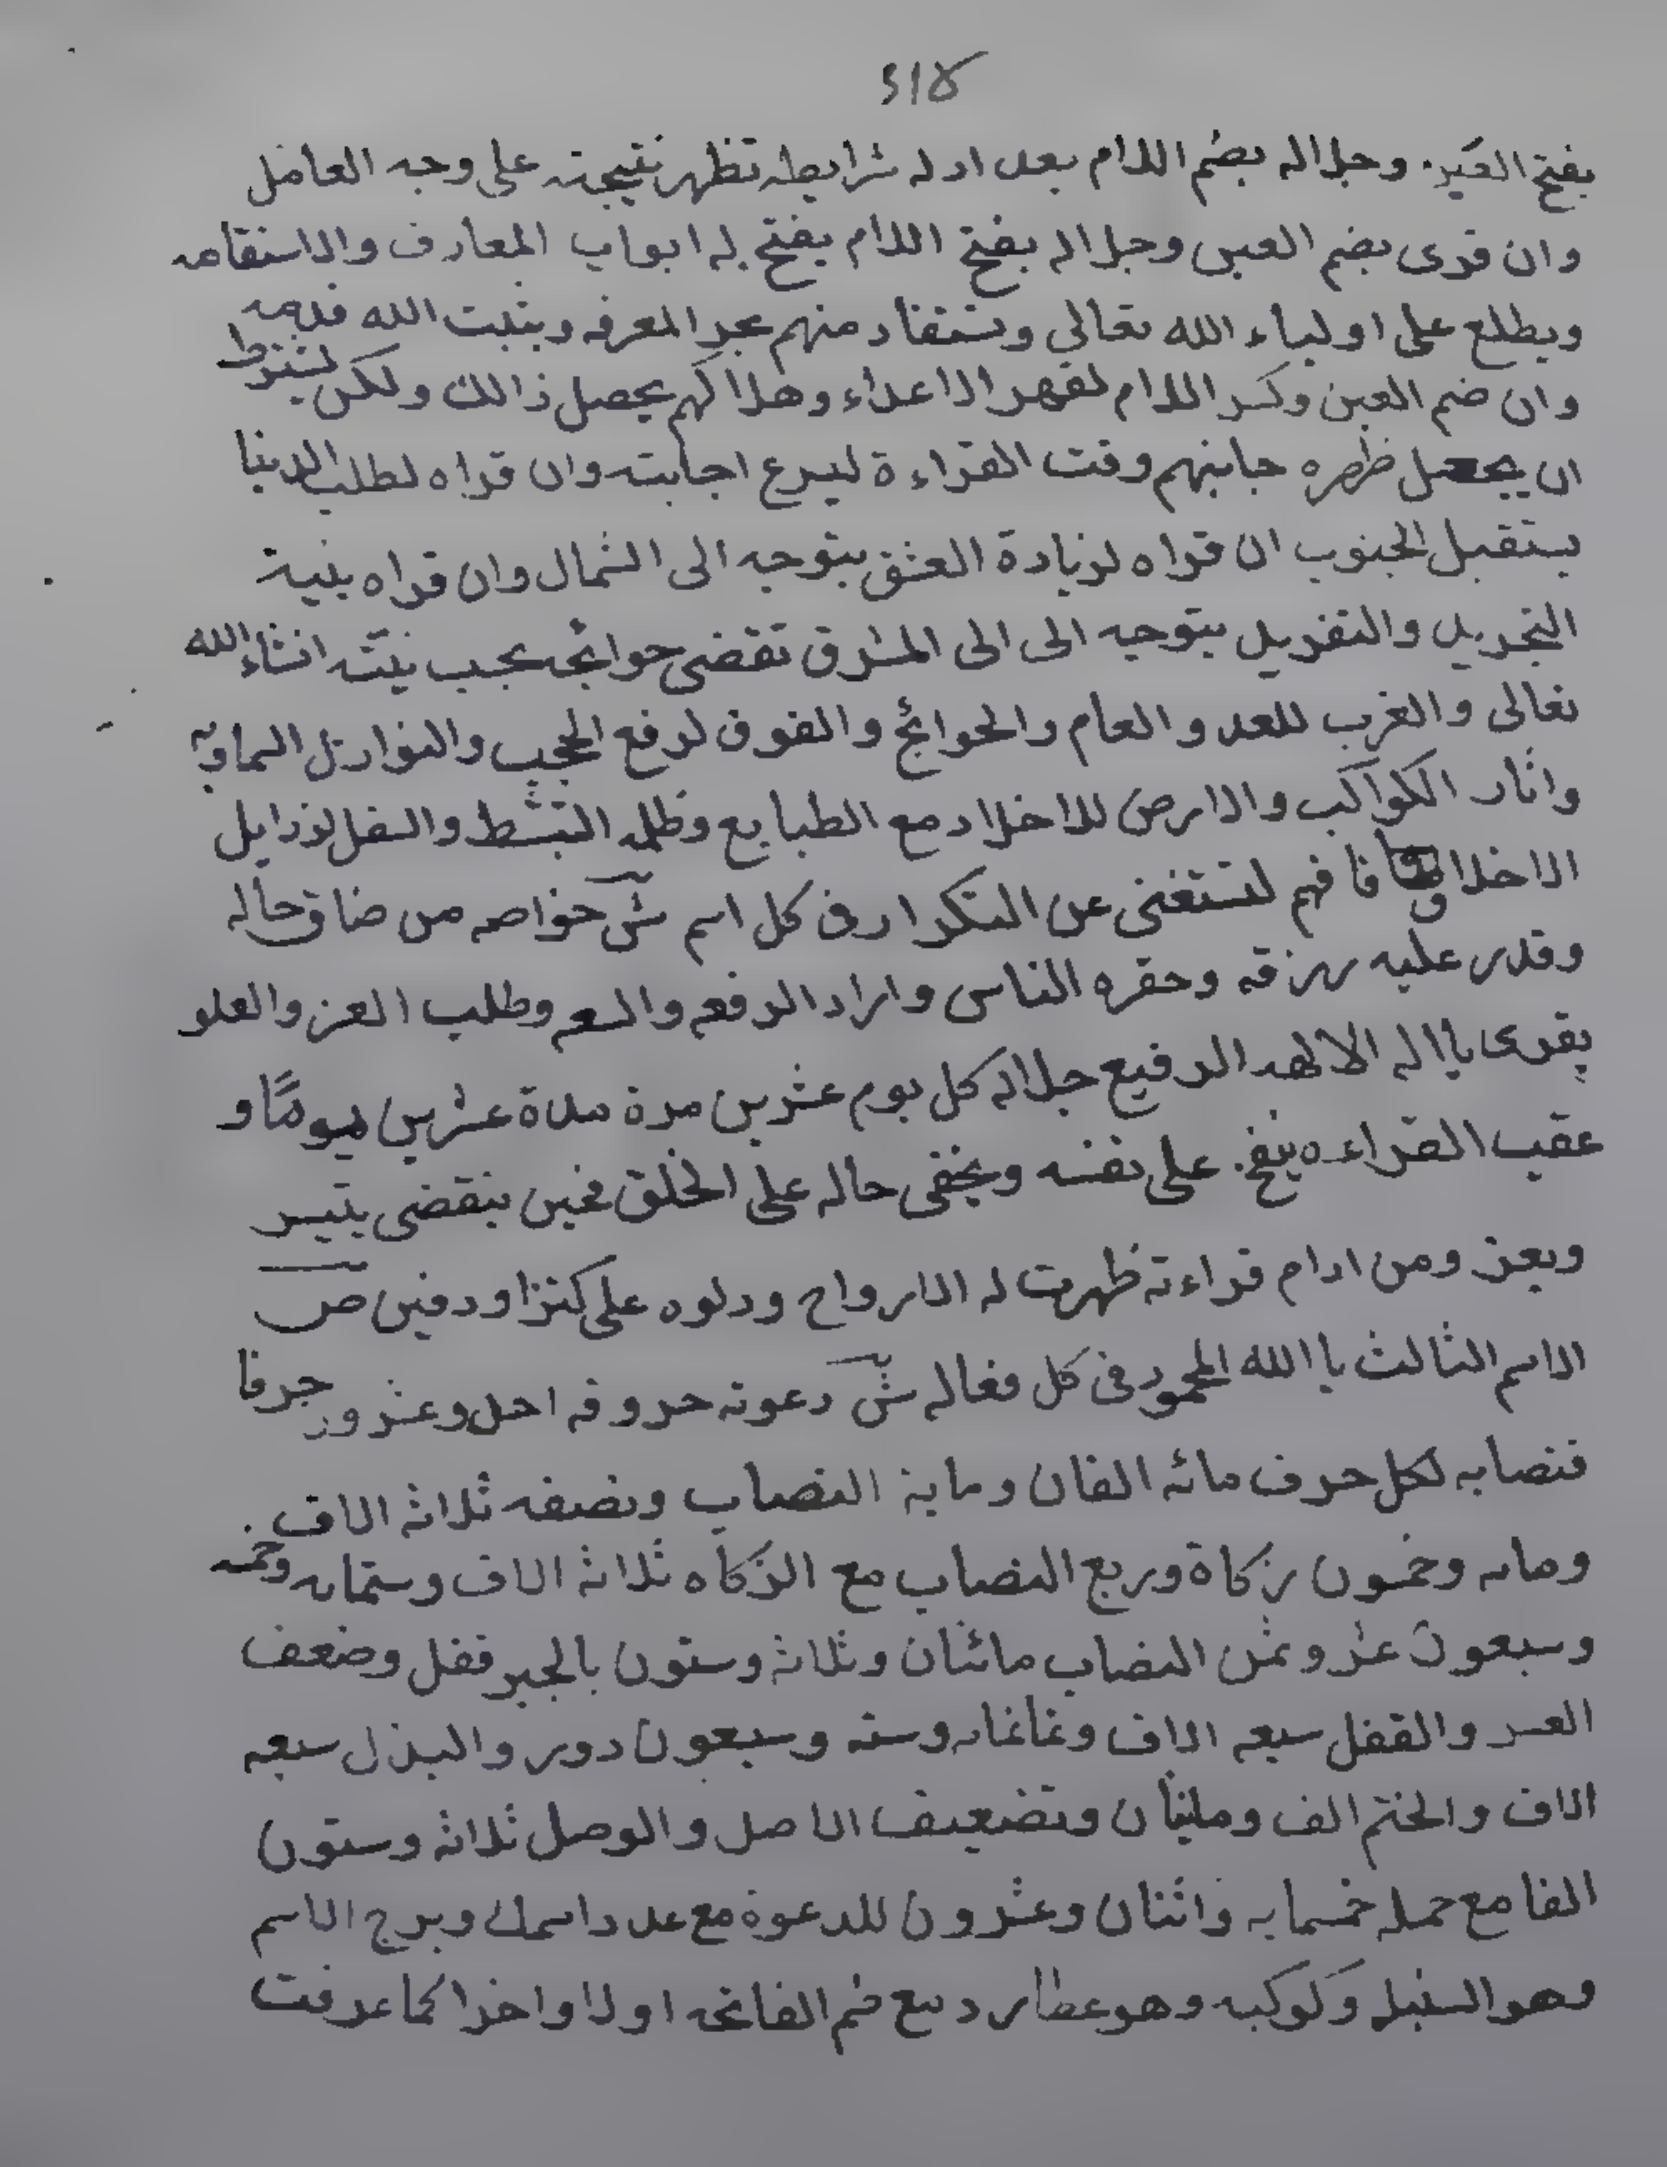 بفتح العين وجلاله بضم اللام بعد ادله شرايطه تظهر نتيجته على وجه العامل
وان قرى بضم العين وجلاله بفتح اللام يفتح له ابواب المعارف والاستقامه
ويطلع على اولياء الله تعالي وتستفاد منهم بحر المعرفه ويثبت الله قدمه
وان ضم العين وكسر اللام لقهر الاعداء وهلاكهم يحصل ذالك ولكن يشترط
ان يجعل ظهره جانبهم وقت القراءة ليسرع اجابته وان قراه لطلب الدنيا
يستقبل الجنوب ان قراه لزيادة العشق يتوجه الى الشمال وان قراه بنية
التجريد والتفريد يتوجه الى الى المشرق تقضى حوائجه بحسب نيته انشاء الله
تعالى والغرب للعدو والعام والحوائج والفوق لرفع الحجب والنوازل السماويه
واثار الكواكب والارض للاخلاد مع الطبايع وظلمه التبسط والسفل لرذايل
الاخلاق فافهم لتستغنى عن التكرار فى كل اسم ش خواصه من ضاق حاله
وقدر عليه رزقه وحقره الناس واراد الرفعه والسعه وطلب العز والعلو
يقرى ياا له الالهه الرفيع جلاله كل يوم عشرين مرة مدة عشرين يومًا و
عقيب القراءه ينفخ على نفسه ويخفى حاله على الخلق فحين ينقضى يتيسر
ويعز ومن ادام قراءته ظهرت له الارواح ودلوه على كنز اودفين ص
الاسم الثالث يا الله المحمود فى كل فعاله ش دعوته حروفه احد وعشرون حرفا
فنصابه لكل حرف مائه الفان وماية النصاب ونصفه ثلاثه الاف
ومايه وخمسون زكاة وربع النصاب مع الزكاه ثلاثه الاف وستمايه وخمسه
وسبعون عشر وثمن النصاب مائتان وثلاثه وستون بالجبر قفل وضعف
العسر والقفل سبعه الاف وثمانمايه وسته وسبعون دور والبذل سبعه
الاف والختم الف ومايتان وتضعيف الاصل والوصل ثلاثه وستون
الفا مع حمله خمسمايه واثنان وعشرون للدعوة مع عدد اسمك وبرج الاسم
وهو السنبله وكوكبه وهو عطارد مع ضم الفاتحه اولا واخرا كما عرفت